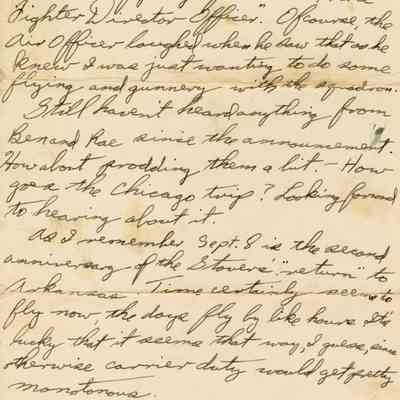 Fighter Director Officer". Of course, the
Air Officer laughed when he saw that as he
knew I was just wanting to do some
flying and gunnery with the squadron.
Still haven't heard anything from
Ben and Rae since the announcement.
How about prodding them a bit. - How
goes the Chicago trip? Looking forward
to hearing about it.
As I remember Sept. 8 is the second
anniversary of the Stovers' "return" to
Arkansas. Time certainly seems to
fly now, the days fly by like hours. It's
lucky that it seems that way, I guess, since
otherwise carrier duty would get pretty
monotonous.